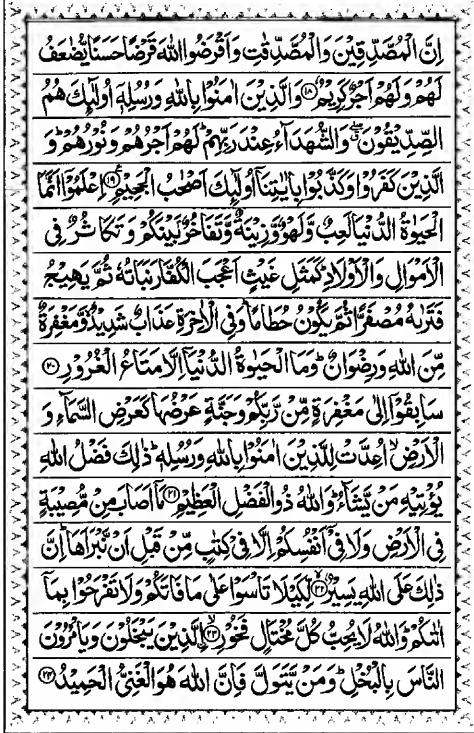 اِنَّ الْمُصَّدِّقِيْنَ وَالْمُصَّدِّقٰتِ وَاَقْرَضُوا اللّٰهَ قَرْضًا حَسَنًا يُّضٰعَفُ
لَهُمْ وَلَهُمْ اَجْرٌ كَرِيْمٌ ﴿۱۸﴾ وَالَّذِيْنَ اٰمَنُوْا بِاللّٰهِ وَرُسُلِهٖۤ اُولٰٓئِكَ هُمُ
الصِّدِّيْقُوْنَ ۖۗ وَالشُّهَدَآءُ عِنْدَ رَبِّهِمْ ؕ لَهُمْ اَجْرُهُمْ وَنُوْرُهُمْ ؕ وَ
الَّذِيْنَ كَفَرُوْا وَكَذَّبُوْا بِاٰيٰتِنَاۤ اُولٰٓئِكَ اَصْحٰبُ الْجَحِيْمِ ﴿۱۹﴾ اِعْلَمُوْۤا اَنَّمَا
الْحَيٰوةُ الدُّنْيَا لَعِبٌ وَّلَهْوٌ وَّزِيْنَةٌ وَّتَفَاخُرٌۢ بَيْنَكُمْ وَتَكَاثُرٌ فِي
الْاَمْوَالِ وَالْاَوْلَادِ ؕ كَمَثَلِ غَيْثٍ اَعْجَبَ الْكُفَّارَ نَبَاتُهٗ ثُمَّ يَهِيْجُ
فَتَرٰىهُ مُصْفَرًّا ثُمَّ يَكُوْنُ حُطَامًا ؕ وَفِي الْاٰخِرَةِ عَذَابٌ شَدِيْدٌ ۙ وَّمَغْفِرَةٌ
مِّنَ اللّٰهِ وَرِضْوَانٌ ؕ وَمَا الْحَيٰوةُ الدُّنْيَاۤ اِلَّا مَتَاعُ الْغُرُوْرِ ﴿۲۰﴾
سَابِقُوْۤا اِلٰى مَغْفِرَةٍ مِّنْ رَّبِّكُمْ وَجَنَّةٍ عَرْضُهَا كَعَرْضِ السَّمَآءِ وَ
الْاَرْضِ ۙ اُعِدَّتْ لِلَّذِيْنَ اٰمَنُوْا بِاللّٰهِ وَرُسُلِهٖ ؕ ذٰلِكَ فَضْلُ اللّٰهِ
يُؤْتِيْهِ مَنْ يَّشَآءُ ؕ وَاللّٰهُ ذُو الْفَضْلِ الْعَظِيْمِ ﴿۲۱﴾ مَاۤ اَصَابَ مِنْ مُّصِيْبَةٍ
فِي الْاَرْضِ وَلَا فِيْۤ اَنْفُسِكُمْ اِلَّا فِيْ كِتٰبٍ مِّنْ قَبْلِ اَنْ نَّبْرَاَهَا ؕ اِنَّ
ذٰلِكَ عَلَى اللّٰهِ يَسِيْرٌ ﴿۲۲﴾ لِّكَيْلَا تَاْسَوْا عَلٰى مَا فَاتَكُمْ وَلَا تَفْرَحُوْا بِمَاۤ
اٰتٰىكُمْ ؕ وَاللّٰهُ لَا يُحِبُّ كُلَّ مُخْتَالٍ فَخُوْرِ ﴿۲۳﴾ ۙ الَّذِيْنَ يَبْخَلُوْنَ وَيَاْمُرُوْنَ
النَّاسَ بِالْبُخْلِ ؕ وَمَنْ يَّتَوَلَّ فَاِنَّ اللّٰهَ هُوَ الْغَنِيُّ الْحَمِيْدُ ﴿۲۴﴾